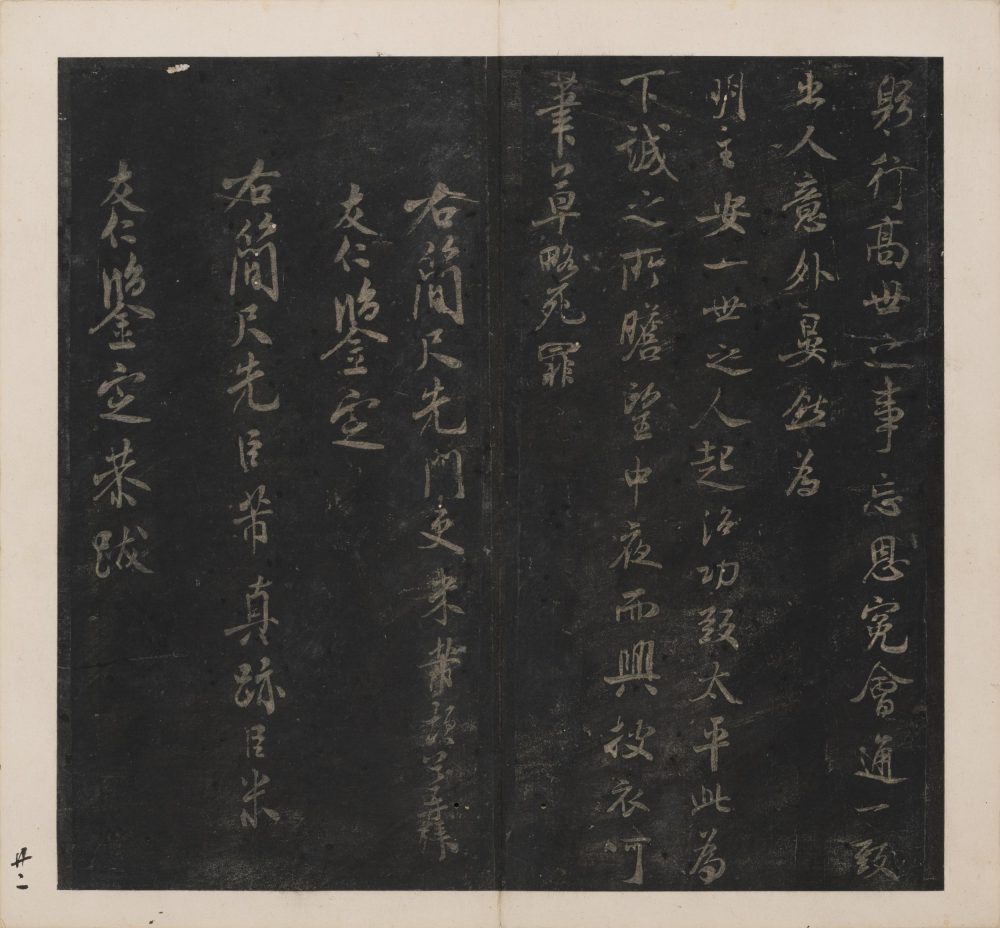 躬行高世之事忘恩冤會通一致
出人意外晏然為
明主安一世之人起治功致太平此為
下誠之所瞻望中夜而興披衣呵
筆草略死罪
右簡尺先門吏米黻
友仁鑒定
右簡尺先臣芾真跡臣米
友仁鑒定恭跋
廿二